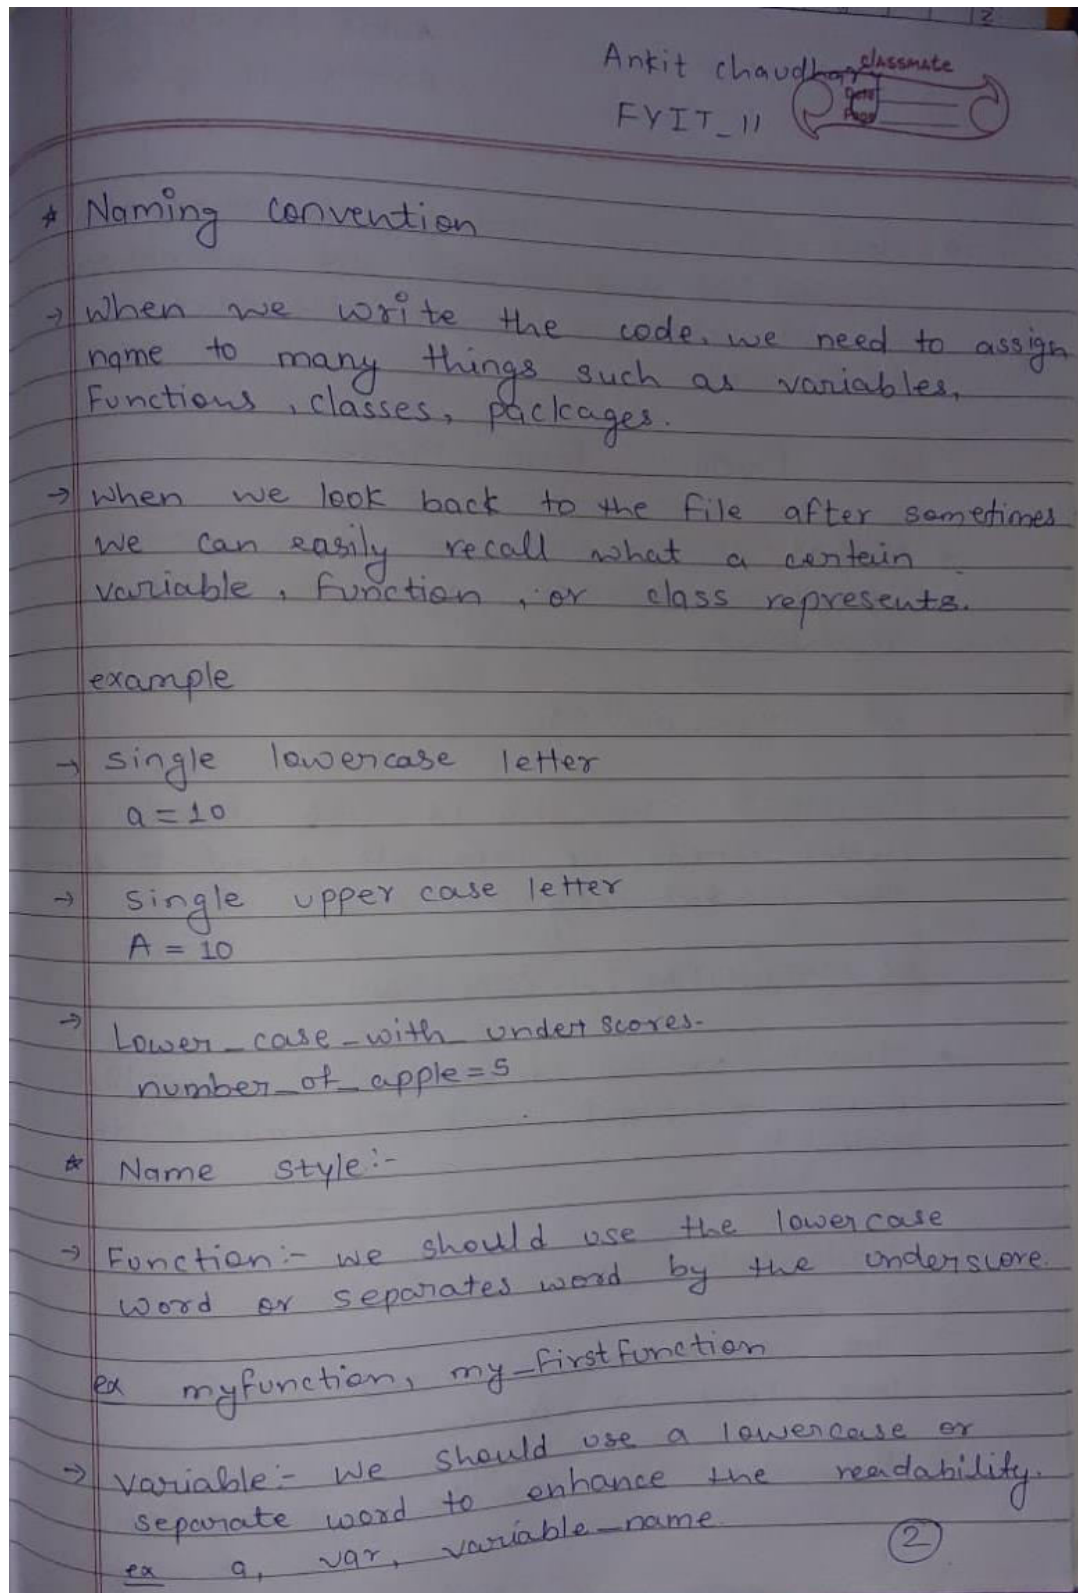 2
Ankit chaudhary
classmate
Date
Page
FYIT_11
* Naming convention
→ When we write the code, we need to assign
name to many things such as variables,
Functions, classes, packages.
→ when we look back to the file after sometimes
we can easily recall what a certain
variable, function, or class represents.
example
→ single lowercase letter
a = 10
→ single upper case letter
A = 10
→ Lower_case_with_underscores.
number_of_apple = 5
* Name style:-
→ Function:- we should use the lowercase
word or separates word by the underscore.
ex myfunction, my_firstfunction
→ variable:- we should use a lowercase or
separate word to enhance the readability.
ex a, var, variable_name
2